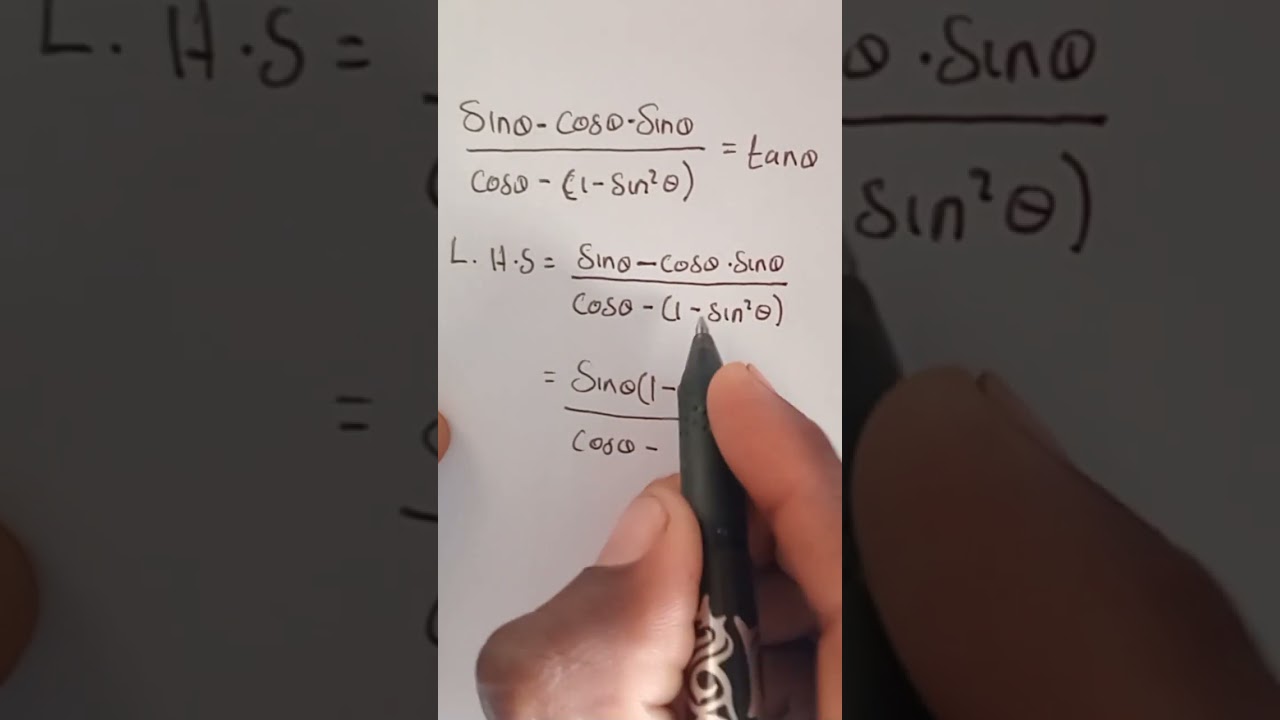 sinθ - cosθ · sinθ
cosθ - (1 - sin²θ)
= tanθ
L. H.S = sinθ - cosθ · sinθ
cosθ - (1 - sin²θ)
= sinθ(1 -
cosθ -